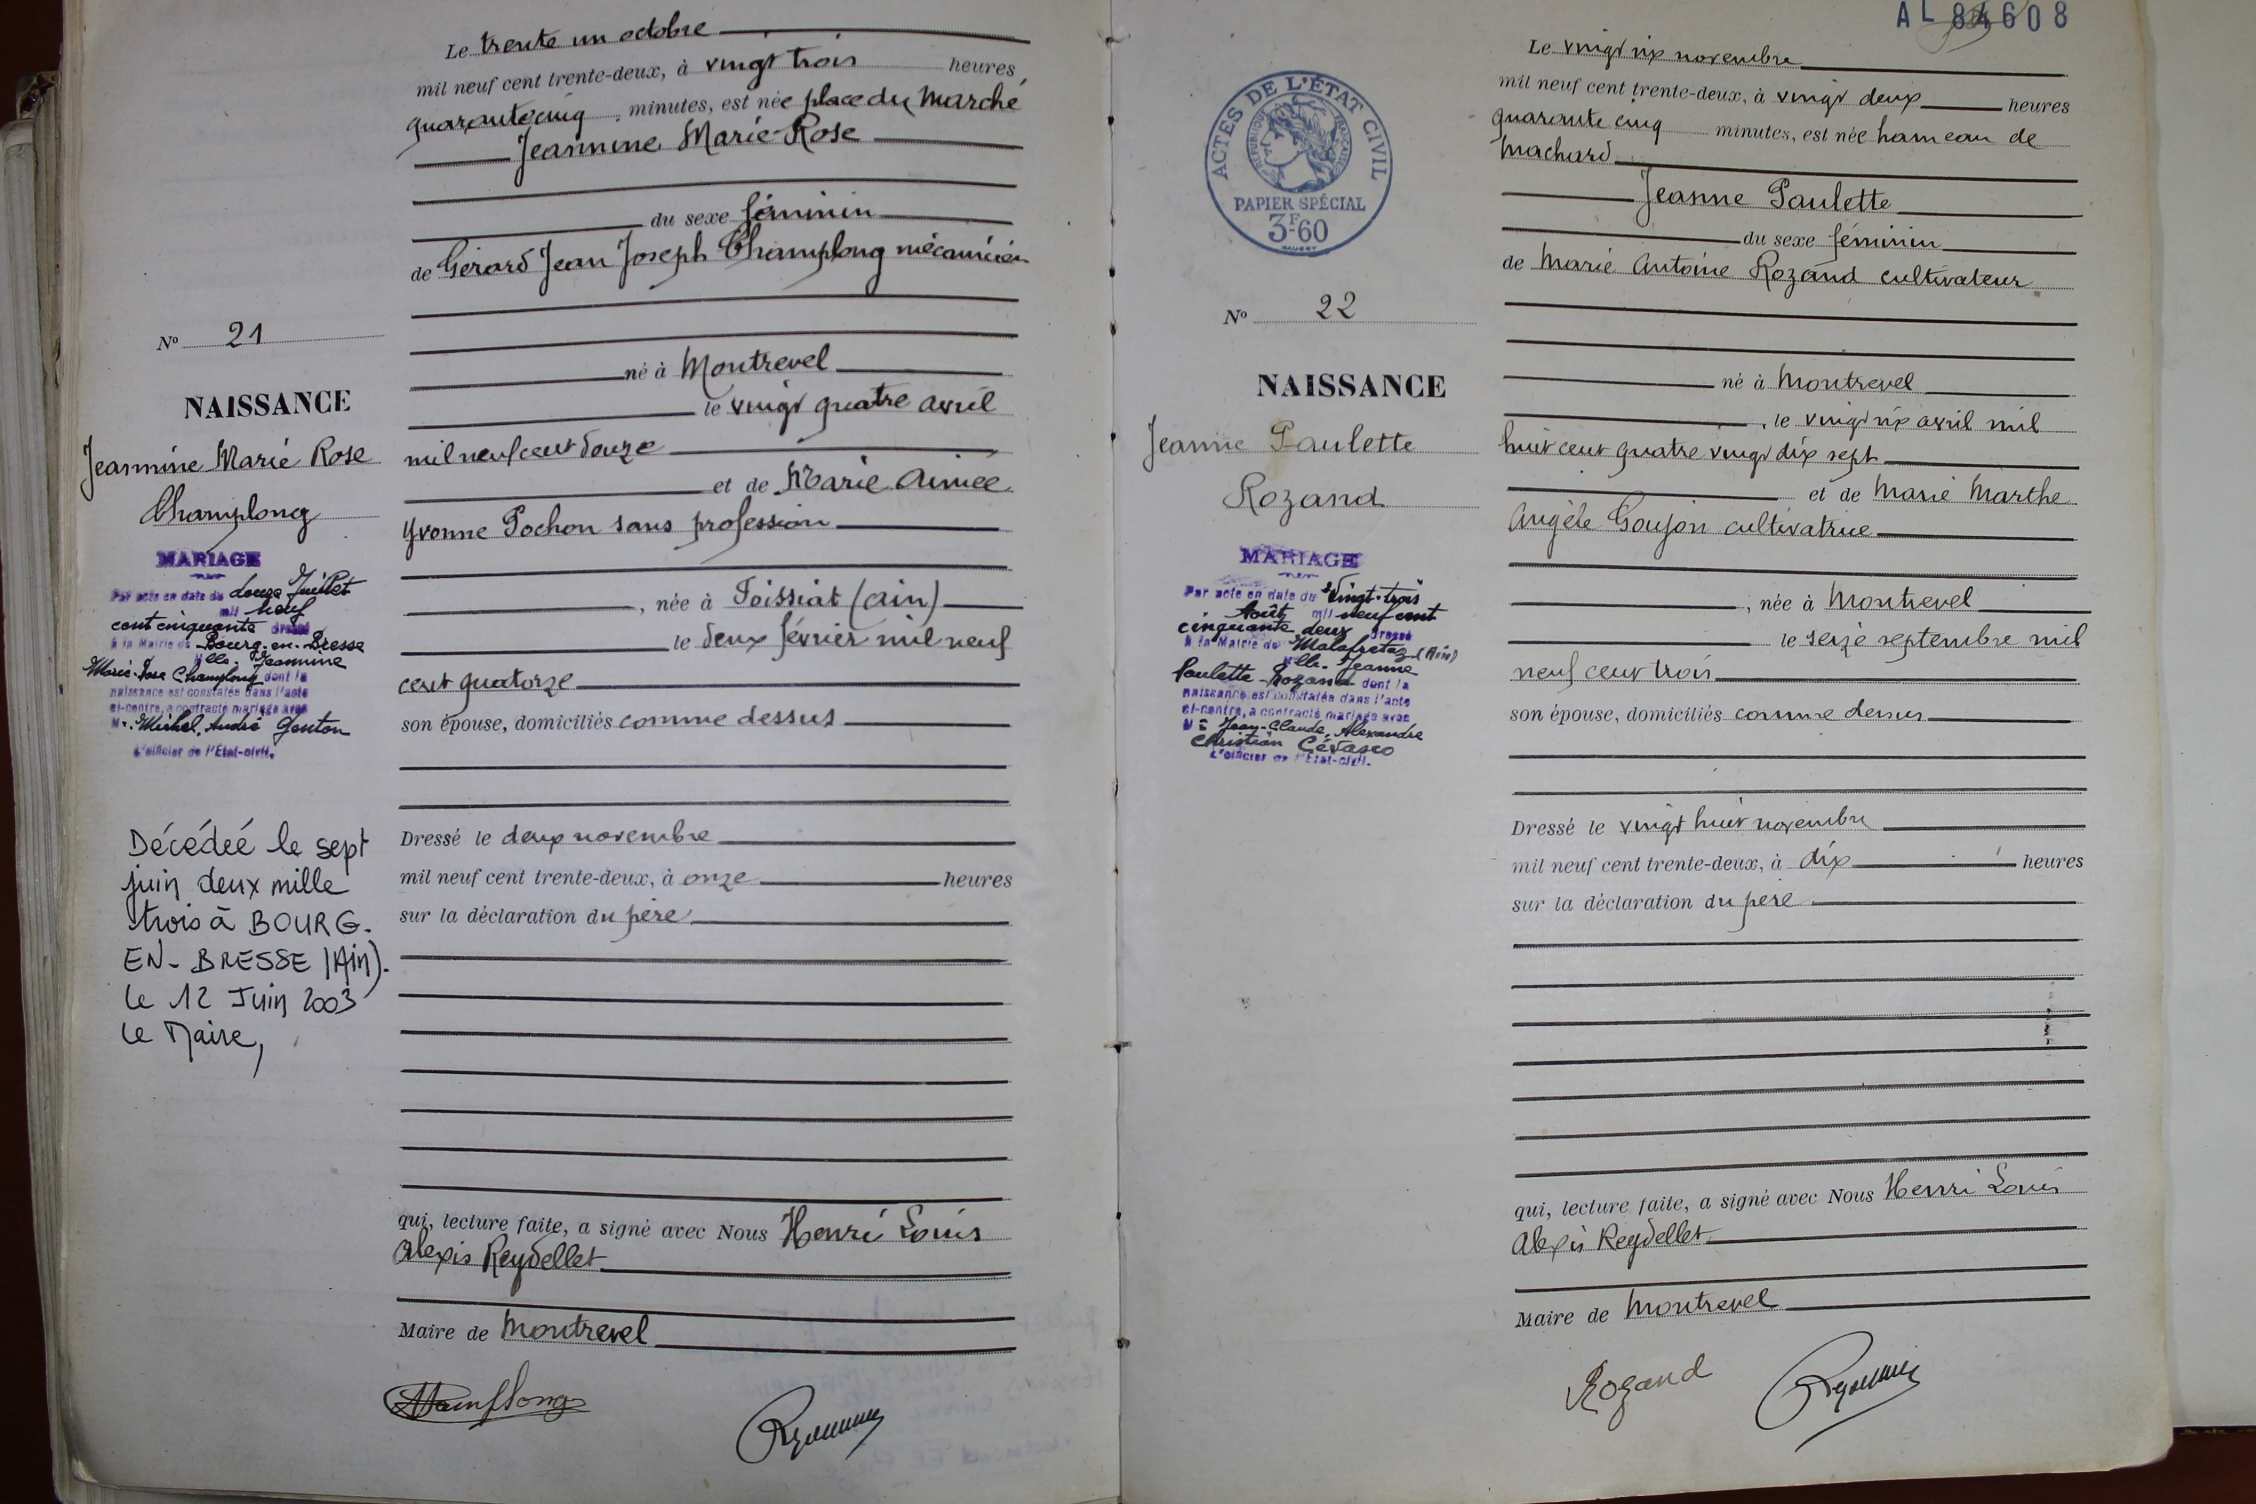 Le trente un octobre
mil neuf cent trente-deux, à vingt trois heures
quarante cinq minutes, est née place du Marché
Jeannine Marie-Rose
du sexe féminin
de Gérard Jean Joseph Champlong mécanicien
né à Montrevel
le vingt quatre avril
mil neuf cent douze
et de Marie Aimée
Yvonne Pochon sans profession
, née à Foissiat (Ain)
le deux février mil neuf
cent quatorze
son épouse, domiciliés comme dessus
Dressé le deux novembre
mil neuf cent trente-deux, à onze heures
sur la déclaration du père
qui, lecture faite, a signé avec Nous Henri Louis
Alexis Reydellet
Maire de Montrevel
Champlong
No 21
NAISSANCE
Jeannine Marie Rose
Champlong
MARIAGE
Par acte en date du douze Juillet
mil neuf
cent cinquante dressé
à la Mairie de Bourg-en-Bresse
Mlle. Jeannine
Marie-Rose Champlong dont la
naissance est constatée dans l'acte
ci-contre, a contracté mariage avec
Mr. Michel, André Genton
L'officier de l'Etat-civil.
Décédée le sept
juin deux mille
trois à BOURG-
EN-BRESSE (Ain).
le 12 Juin 2003
Le Maire,
AL 84608
Le vingt six novembre
mil neuf cent trente-deux, à vingt deux heures
quarante cinq minutes, est née hameau de
Machard
Jeanne Paulette
du sexe féminin
de Marie Antoine Rozand cultivateur
né à Montrevel
, le vingt six avril mil
huit cent quatre vingt dix sept
et de Marie Marthe
Angèle Goujon cultivatrice
, née à Montrevel
le seize septembre mil
neuf cent trois
son épouse, domiciliés comme dessus
Dressé le vingt huit novembre
mil neuf cent trente-deux, à dix heures
sur la déclaration du père
qui, lecture faite, a signé avec Nous Henri Louis
Alexis Reydellet
Maire de Montrevel
Rozand
ACTES DE L'ÉTAT CIVIL
RÉPUBLIQUE FRANÇAISE
PAPIER SPÉCIAL
3F.60
No 22
NAISSANCE
Jeanne Paulette
Rozand
MARIAGE
Par acte en date du Vingt-trois
Août mil neuf cent
cinquante deux dressé
à la Mairie de Malafretaz (Ain)
Mlle. Jeanne
Paulette Rozand dont la
naissance est constatée dans l'acte
ci-contre, a contracté mariage avec
Mr Jean-Claude, Alexandre
Christian Cévasco
L'officier de l'Etat-civil.